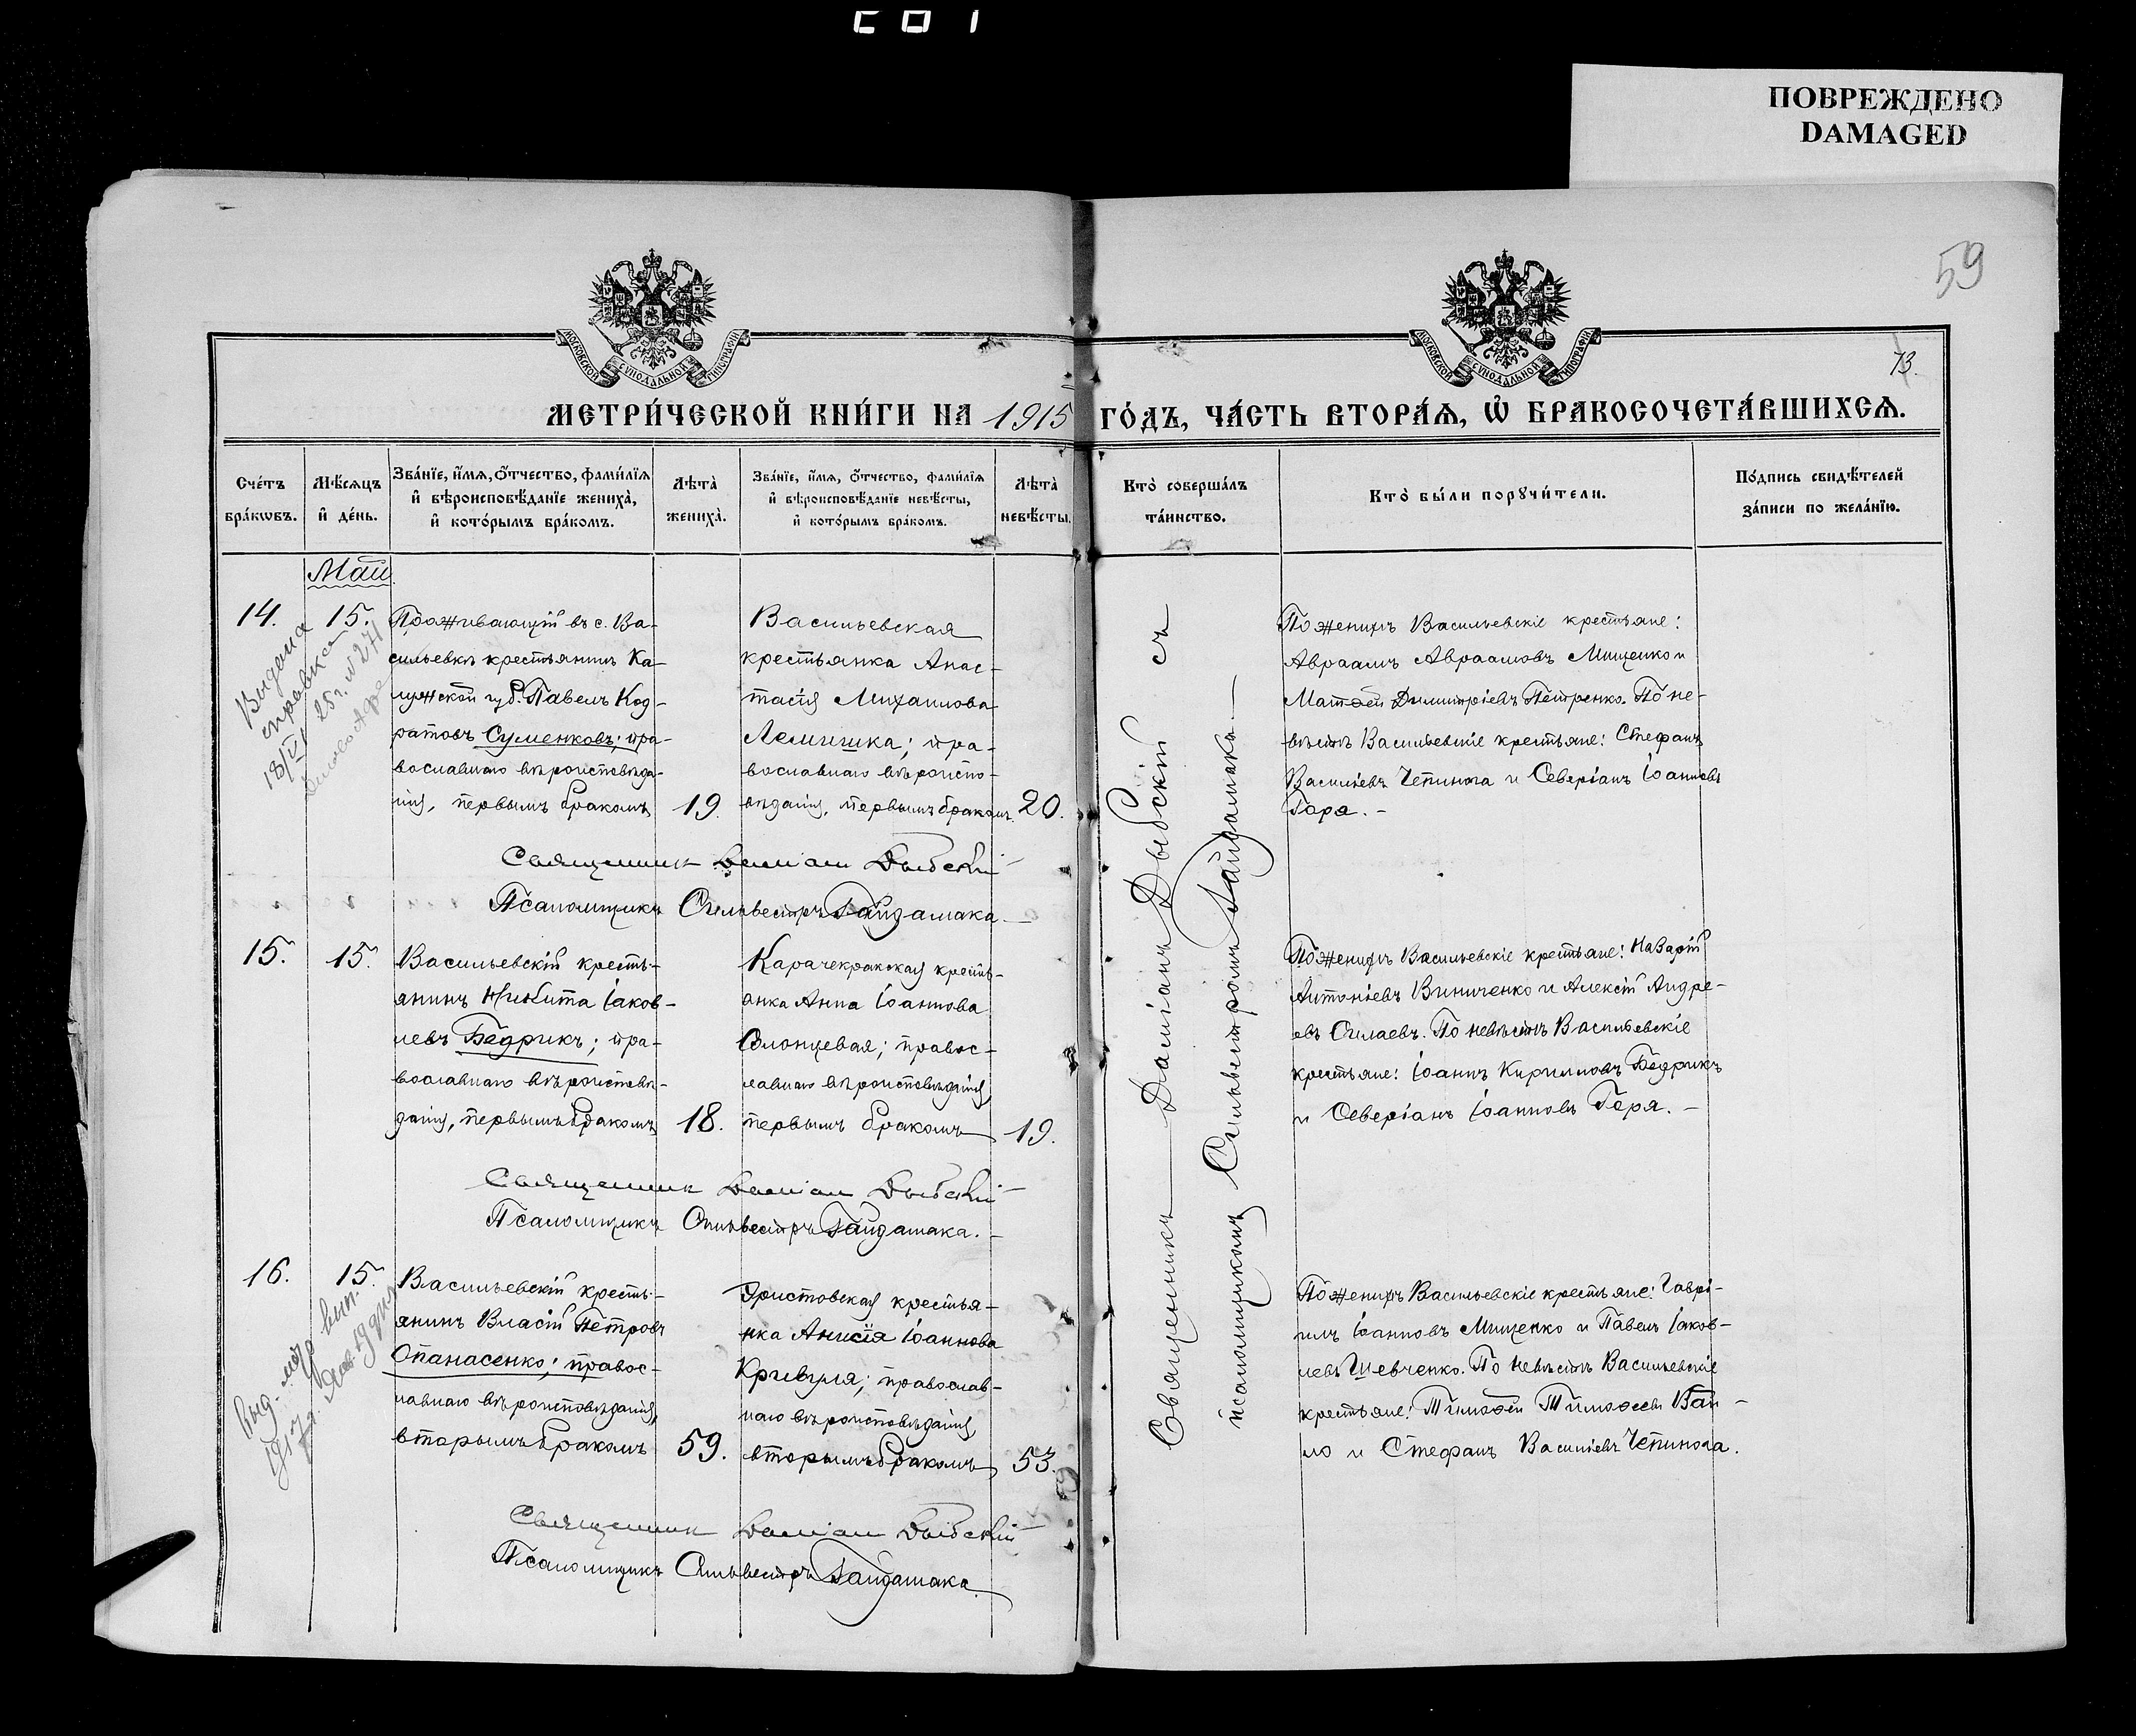 ПОВРЕЖДЕНО
DAMAGED
59
73.
МОСКОВСКОЙ СУНОДАЛЬНОЙ ТИПОГРАФІИ
МОСКОВСКОЙ СУНОДАЛЬНОЙ ТИПОГРАФІИ
МЕТРИ́ЧЕСКОЙ КНИ́ГИ НА 1915 ГО́ДЪ, ЧА́СТЬ ВТОРА́Ѧ, Ѡ҆ БРАКОСОЧЕТА́ВШИХСѦ.
Сче́тъ
бра́кѡвъ.
Мѣ́сѧцъ
и҆ де́нь.
Зва́нїе, и҆́мѧ, ѻ҆́тчество, фами́лїѧ
и҆ вѣроисповѣ́данїе жениха̀,
и҆ кото́рымъ бра́комъ.
Лѣта̀
жениха̀.
Зва́нїе, и҆́мѧ, ѻ҆́тчество, фами́лїѧ
и҆ вѣроисповѣ́данїе невѣ́сты,
и҆ кото́рымъ бра́комъ.
Лѣта̀
невѣ́сты.
Кто̀ соверша́лъ
та́инство.
Кто̀ бы́ли порꙋчи́тели.
По́дпись свидѣ́телей
за́писи по жела́нїю.
Май
14.
15.
Выдана
справка
18/VI 25 г. №271
Проживающій въ с. Ва-
сильевкѣ крестьянинъ Ка-
лужской губ. Павелъ Код-
ратовъ Суменковъ; пра-
вославнаго вѣроисповѣда-
нія, первымъ бракомъ
19.
Васильевская
крестьянка Анас-
тасія Михаилова
Лемишка; пра-
вославнаго вѣроиспо-
вѣданія, первымъ бракомъ
20.
По женихѣ Васильевскіе крестьяне:
Авраамъ Авраамовъ Мищенко и
Матѳей Димитріевъ Петренко. По не-
вѣстѣ Васильевскіе крестьяне: Стефанъ
Василіевъ Чепинога и Северіанъ Іоанновъ
Горя. -
Священникъ Даміанъ Дыбскій
Псаломщикъ Сильвестръ Гайдамака.
15.
15.
Васильевскій кресть-
янинъ Никита Іаков-
левъ Бедрикъ; пра-
вославнаго вѣроисповѣ-
данія, первымъ бракомъ
18.
Карачекракская кресть-
янка Анна Іоаннова
Солонцевая; правос-
лавнаго вѣроисповѣданія,
первымъ бракомъ
19.
По женихѣ Васильевскіе крестьяне: Назарій
Антоніевъ Виниченко и Алексій Андре-
евъ Силаевъ. По невѣстѣ Васильевскіе
крестьяне: Іоаннъ Кирилловъ Бедрикъ
и Северіанъ Іоанновъ Горя. -
Священникъ Даміанъ Дыбскій
Псаломщикъ Сильвестръ Гайдамака.
16.
15.
Выд.
1917 г. Янв. 19 дня
Васильевскій кресть-
янинъ Власій Петровъ
Опанасенко; правос-
лавнаго вѣроисповѣданія,
вторымъ бракомъ
59.
Эристовская крестья-
нка Анисія Іоаннова
Кривуля; православ-
наго вѣроисповѣданія,
вторымъ бракомъ
53.
По женихѣ Васильевскіе крестьяне: Гаврі-
илъ Іоанновъ Мищенко и Павелъ Іаков-
левъ Шевченко. По невѣстѣ Васильевскіе
крестьяне: Тимоѳей Тимоѳеевъ Вай-
ло и Стефанъ Василіевъ Чепинога.
Священникъ Даміанъ Дыбскій
Псаломщикъ Сильвестръ Гайдамака.
Священникъ Даміанъ Дыбскій съ
псаломщикомъ Сильвестромъ Гайдамакою